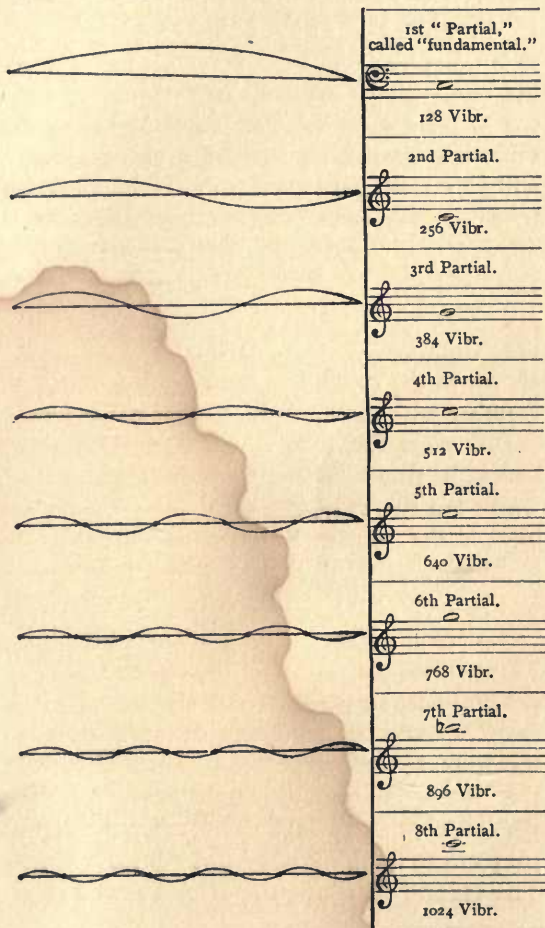 1st “ Partial,”
called “fundamental.”
128 Vibr.
2nd Partial.
256 Vibr.
3rd Partial.
384 Vibr.
4th Partial.
512 Vibr.
5th Partial.
640 Vibr.
6th Partial.
768 Vibr.
7th Partial.
896 Vibr.
8th Partial.
1024 Vibr.